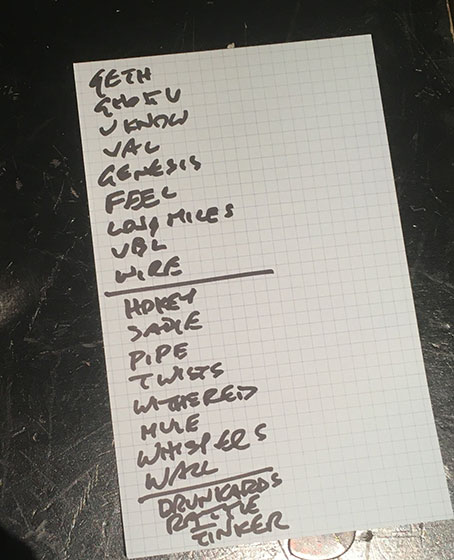 GETH
GHOFU
U KNOW
VAL
GENESIS
FEEL
LONG MILES
UBL
WIRE
HOKEY
SADIE
PIPE
TWISTS
WITHERED
MULE
WHISPERS
WALL
DRUNKARDS
RATTLE
TINKER